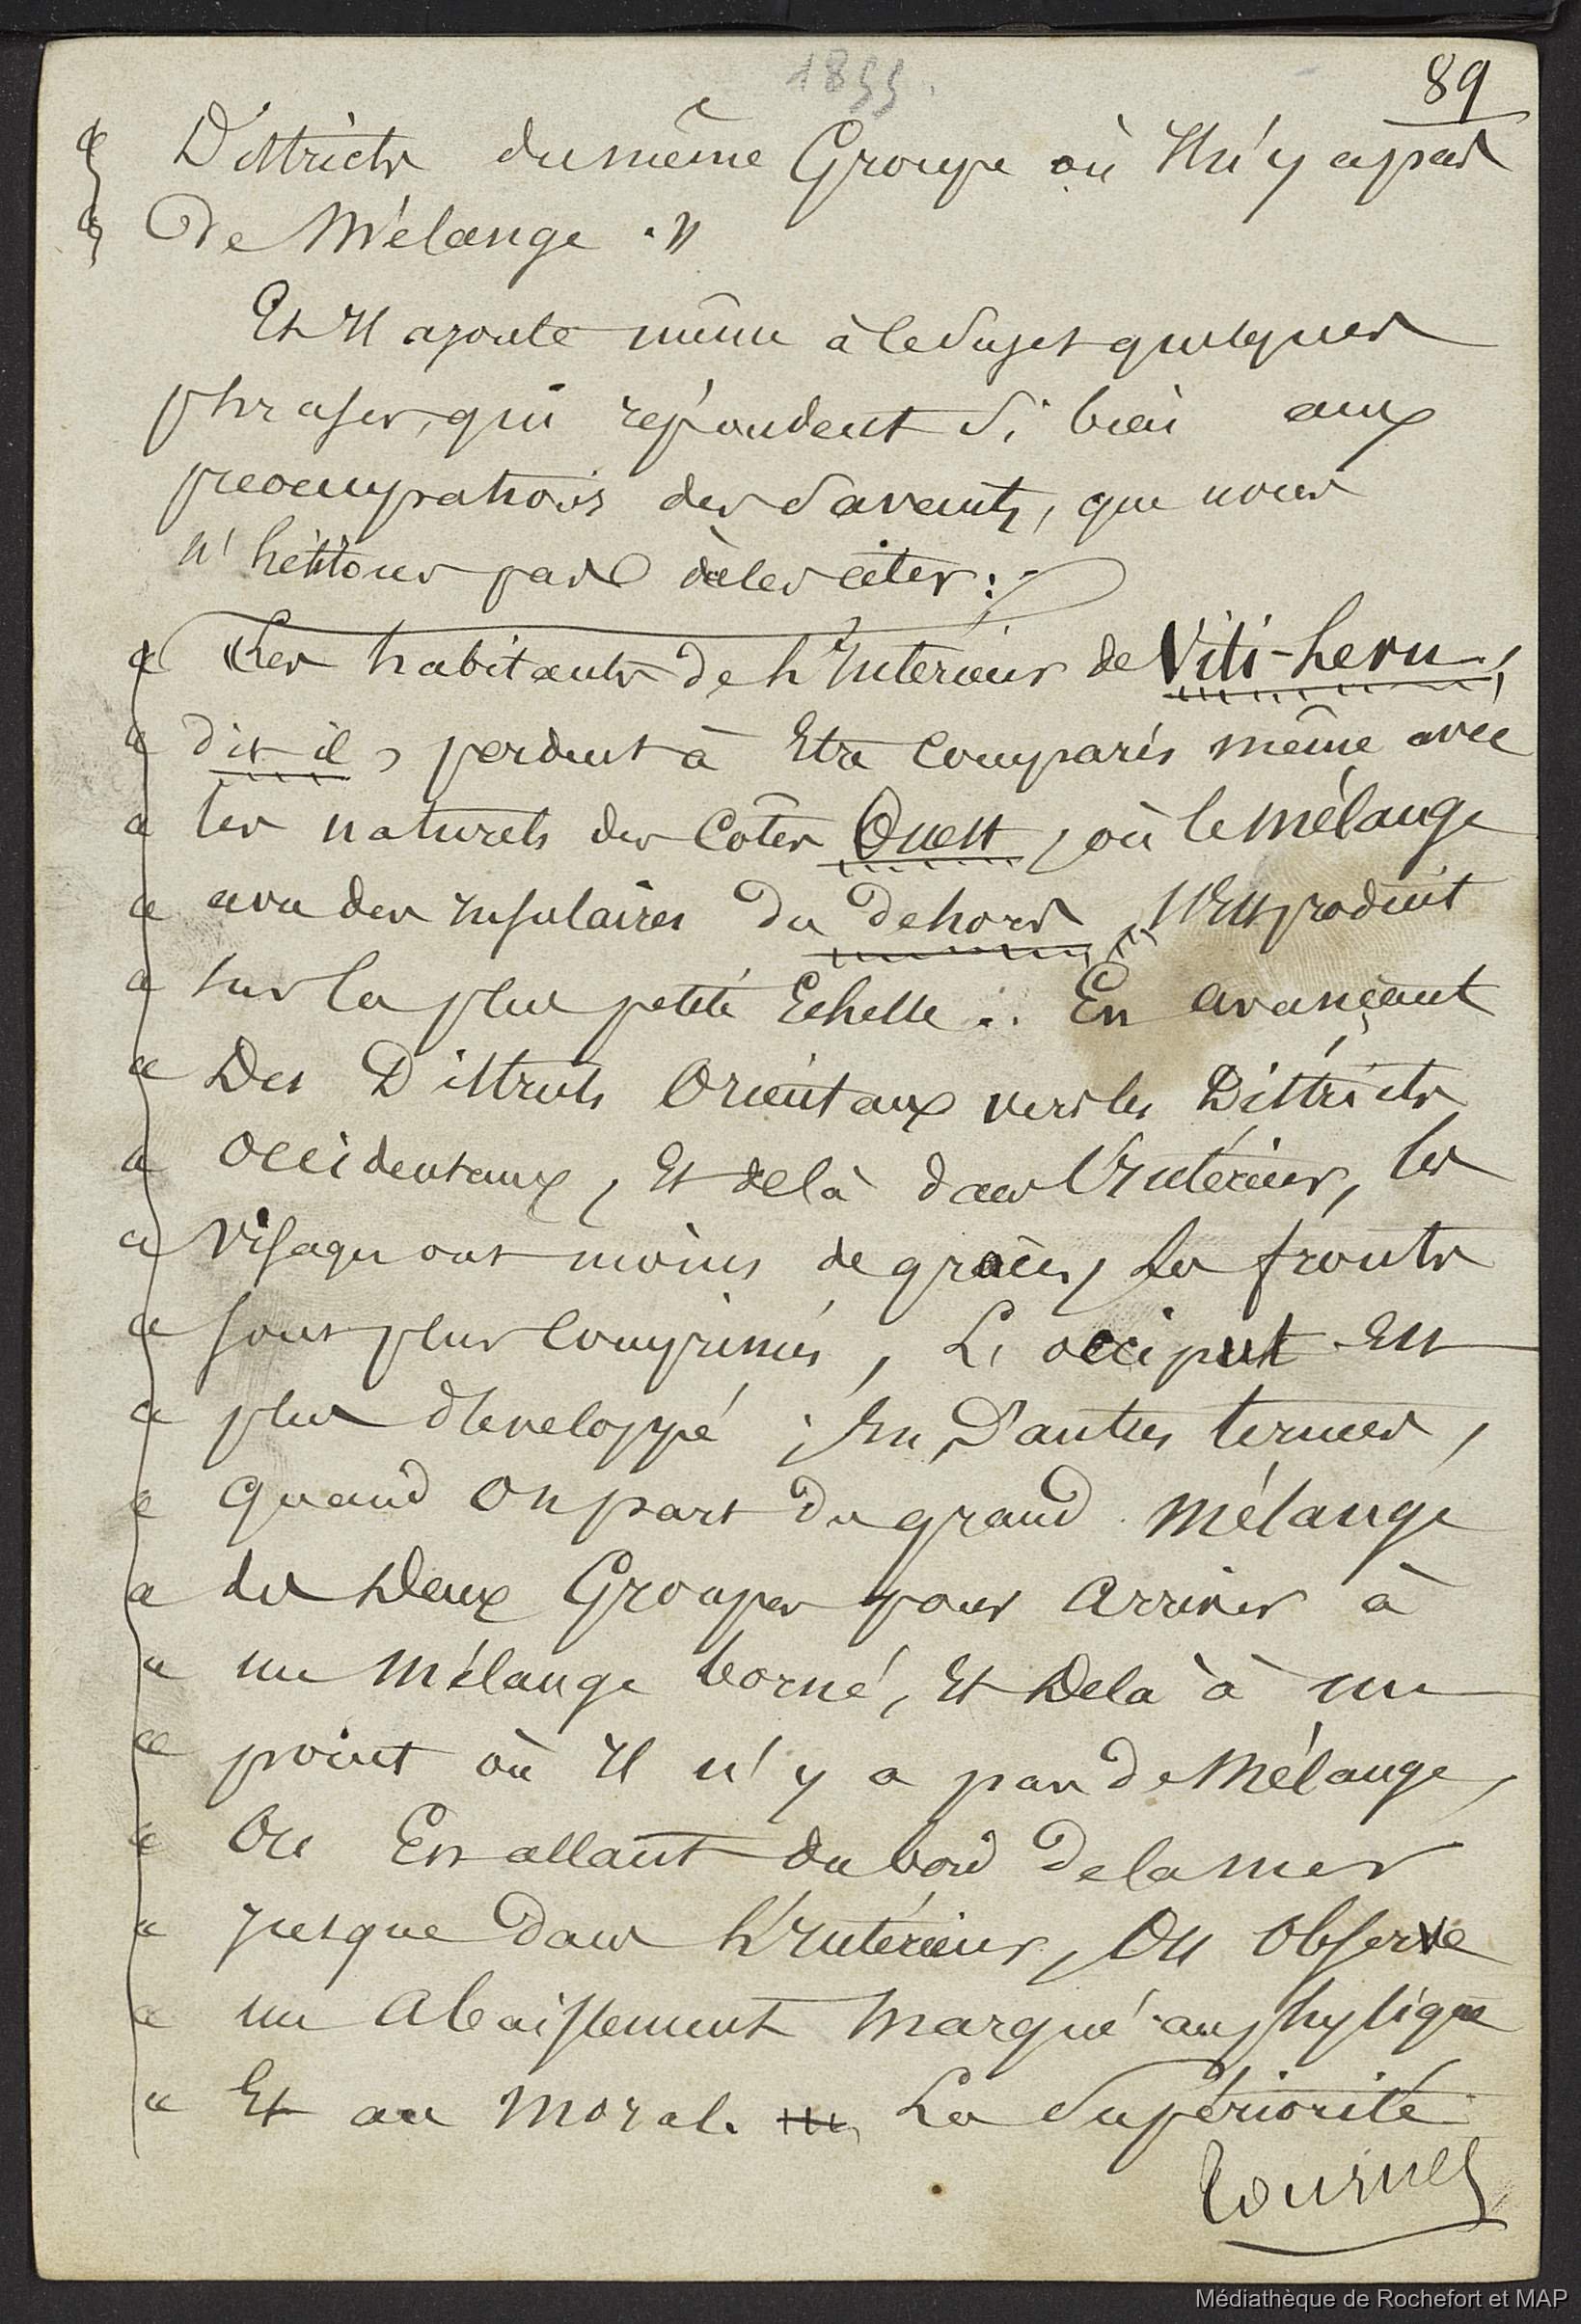 1855.
89
« Districts du même Groupe où Il n'y a pas
« de Mélange. »
Et Il ajoute même à ce Sujet quelques
phrases, qui répondent Si bien aux
préoccupations des Savants, que nous
n'hésitons pas à les citer :
« "Les habitants de L'Intérieur de Viti-Levu,
« dit-il, perdent à Etre Comparés même avec
« les naturels des Côtes Ouest, où le Mélange
« avec des Insulaires du dehors, s'Est produit
« sur la plus petite Echelle. En avançant
« Des Districts Orientaux vers les Districts
« Occidentaux, Et de là dans L'Intérieur, les
« Visages ont moins de grâces, les fronts
« sont plus Comprimés, L'occiput Est
« plus développé ; En D'autres termes,
« quand On part du grand Mélange
« des Deux Groupes pour Arriver à
« un Mélange borné, Et De là à un
« point où Il n'y a pas de Mélange,
« Ou En allant du bord de la mer
« jusque dans L'Intérieur, On Observe
« un Abaissement Marqué au physique
« Et au Moral. La Supériorité
Tournez
Médiathèque de Rochefort et MAP